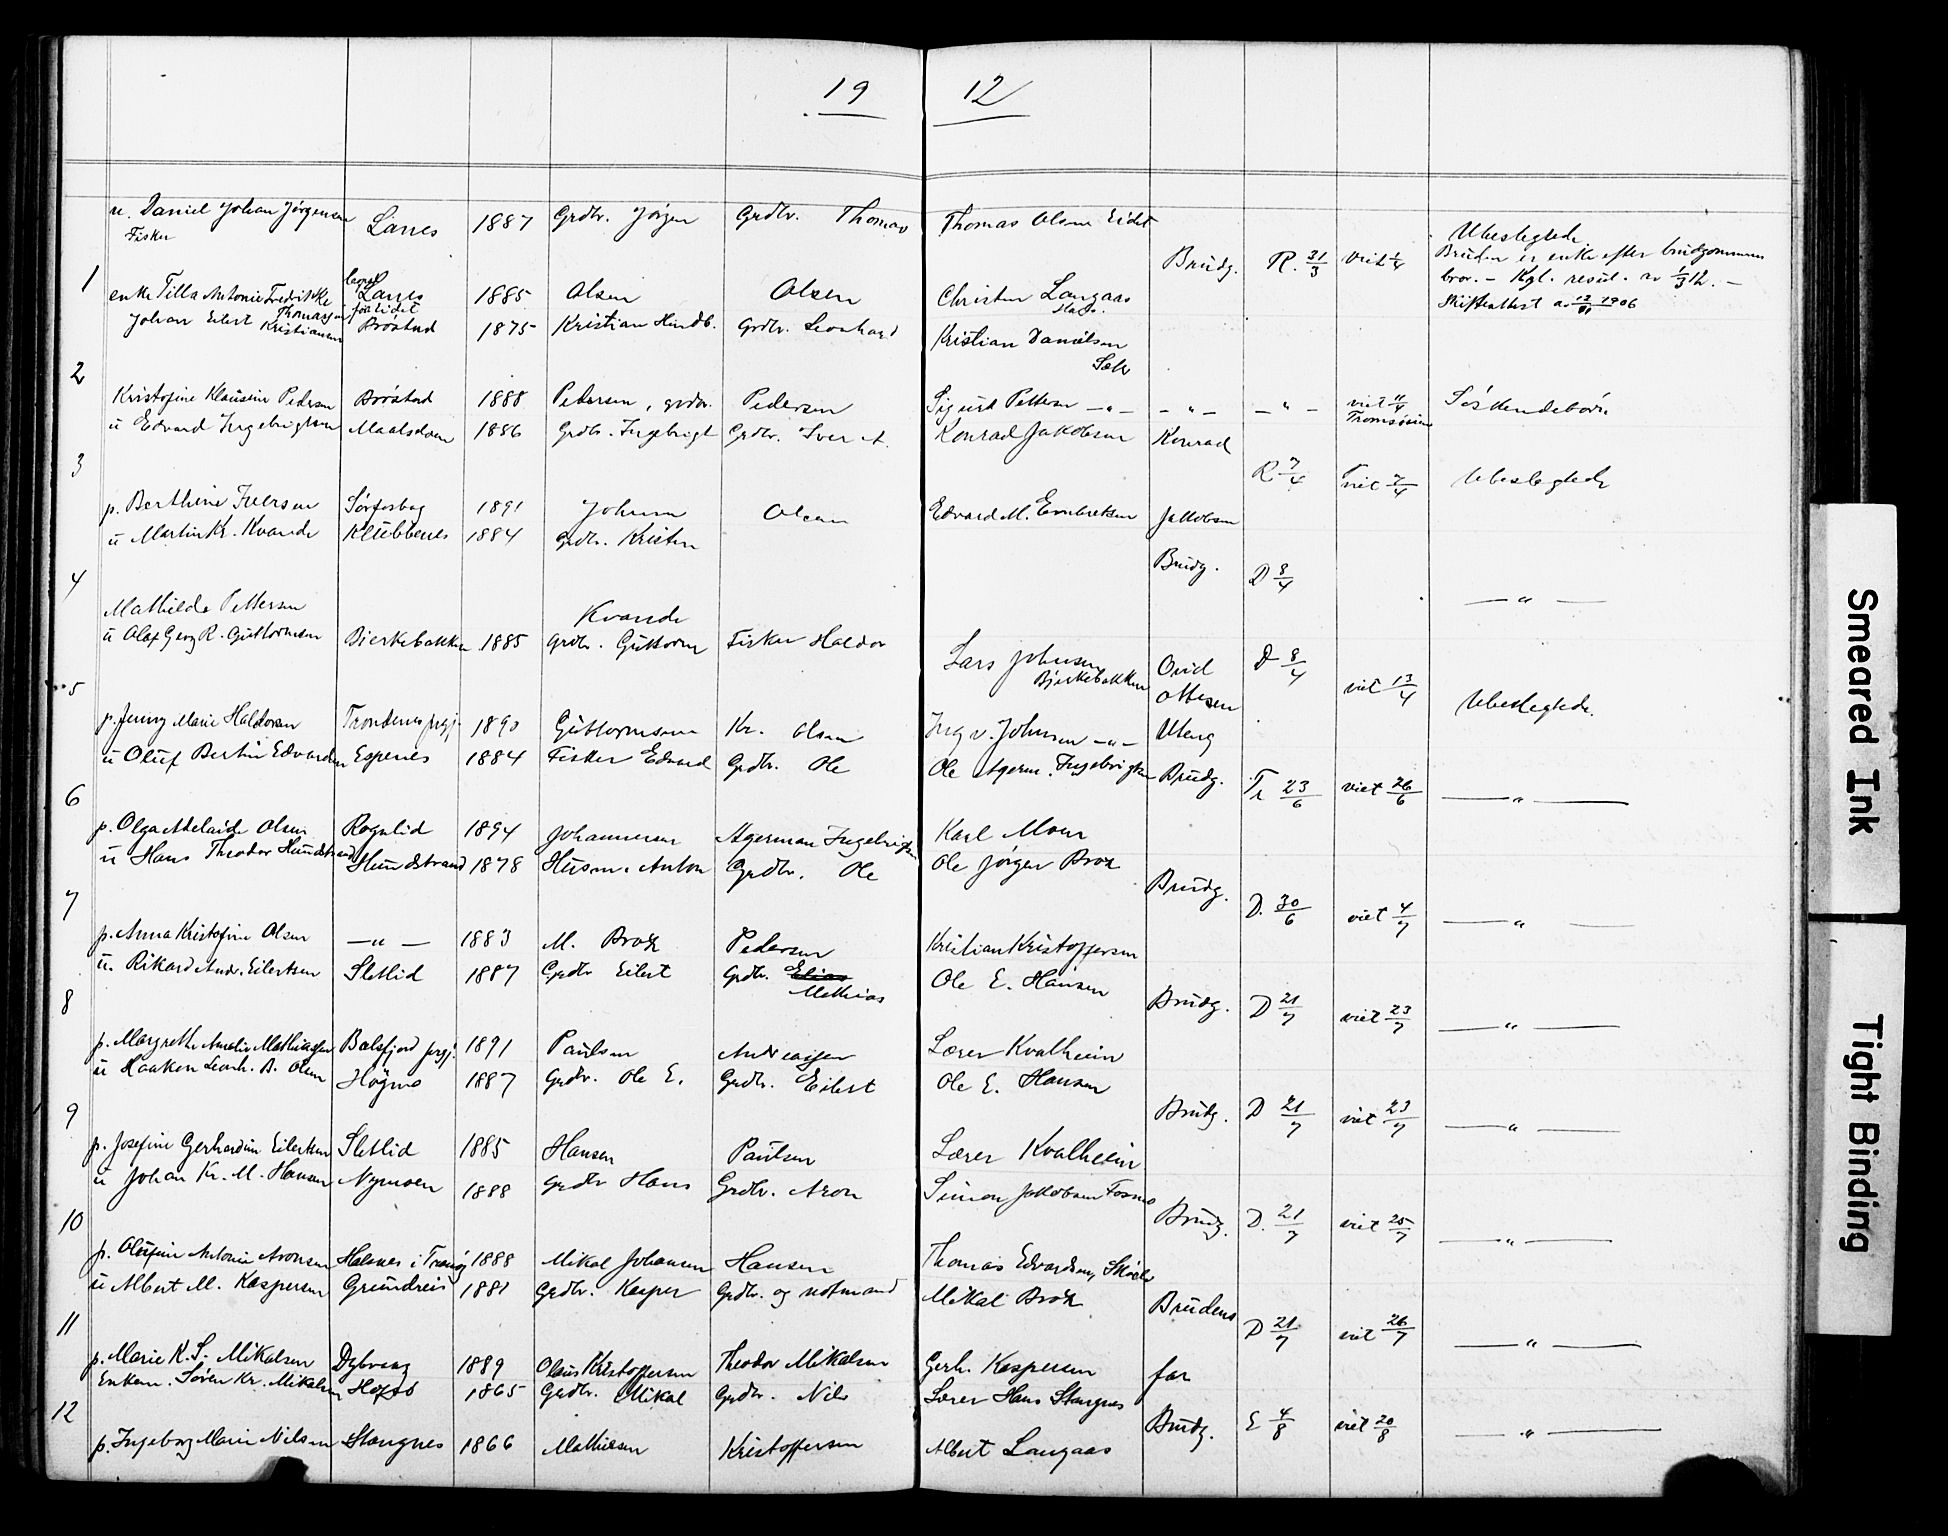 19 12
u. Daniel Johan Jørgensen Lanes 1887 Grdbr. Jørgen Grdbr. Thomas Thomas Olsen Eidet
Fisker
Brudg. R. 31/3 viet 1/4 Ubeslegtede
Bruden er enke efter brudgommens
1
enke Tilla Antonie Fredrikke Lanes 1885 Olsen Olsen Christen Langaas
bror. – Kgl. resol. av 1/3 12. –
Thomassen
Skifteattest av 1906
Johan Eilert Kristiansen Brøstad 1875 Kristian Hindb. Grdbr. Leonhard Kristian Danielsen
2
Kristofine Klausine Pedersen Brøstad 1888 Pedersen, grdbr. Pedersen Sigurd Pettersen – " – – " – – " – viet 11/4 Søskendebørn
u Edvard Ingebrigtsen Maalsdon 1886 Grdbr. Ingebrigt Grdbr. Iver A. Konrad Jakobsen Konrad
3
R 7/4 viet 7/4 Ubeslegtede
p. Berthine Iversen Sørfosbog 1891 Johnsen Olsen Edvard M. Jakobsen
u Martin Kr. Kvande Klubbenes 1884 Grdbr. Kristen
4
Brudg. D 8/4 – " –
Mathilde Pettersen Kvande
u Olaf Georg R. Guttormsen Bjerkebakken 1885 Grdbr. Guttorm Fisker Haldor Lars Johnsen Ovid D 8/4
Bjerkebakken Ottesen
5
viet 13/4 Ubeslegtede.
p. Jenny Marie Haldorsen Trondenes prgj. 1890 Guttormsen Kr. Olsen Ingv. Johnsen – " – Uteng
u Oluf Bertin Edvardsen Espenes 1884 Fisker Edvard Grdbr. Ole Ole Agerm. Ingebrigtsen Brudg. Tr 23/6 viet 26/6 – " –
6
p. Olga Adelaide Olsen Rognlid 1894 Johannesen Agerman Ingebrigtsen Karl Moen
u Hans Theodor Hundstrand Hundstrand 1878 Husm. Anton Grdbr. Ole Ole Jørgen Brox
7
Brudg. D. 30/6 viet 4/7 – " –
p. Anna Kristofine Olsen – " – 1883 M. Brox Pedersen Kristian Kristoffersen
u. Rikard Andr. Eilertsen Sletlid 1887 Grdbr Eilert Grdbr. Elias Ole E. Hansen
Mathias
8
Brudg. D 21/7 viet 23/7 – " –
p. Margrethe Amalie Mathiassen Balsfjord prgj. 1891 Paulsen Andreassen Lærer Kvalheim
u Haakon Leonh. B. Olsen Högmo 1887 Grdbr. Ole E. Grdbr. Eilert Ole E. Hansen
9
Brudg. D 21/7 viet 23/7 – " –
p. Josefine Gerhardine Eilertsen Sletlid 1885 Hansen Paulsen Lærer Kvalheim
u Johan Kr. M. Hansen Nymoen 1888 Grdbr Hans Grdbr. Aron Simon Jakobsen Fosmo
10
Brudg. D. 21/7 viet 25/7 – " –
p. Olufine Antonie Aronsen Halsnes i Tranøy 1888 Mikal Johansen Hansen Thomas Edvardsen,
u Albert M. Kaspersen Grundreis 1881 Grdbr. Kasper Grdbr. og notmand Mikal Brox Brudens
11
D 21/7 viet 26/7 – " –
p. Marie K. S. Mikalsen Dybvaag 1889 Olaus Kristoffersen Theodor Mikalsen Gerh. Kaspersen far
Enkem. Søren Kr. Mikalsen Hofsø 1865 Grdbr. Mikal Grdbr. Nils Lærer Hans Stangnes
12
Brudg. E 4/8 viet 20/8 – " –
p. Ingeborg Marie Nilsen Stangnes 1866 Mathiesen Kristoffersen Albert Langaas
Smeared Ink
Tight Binding